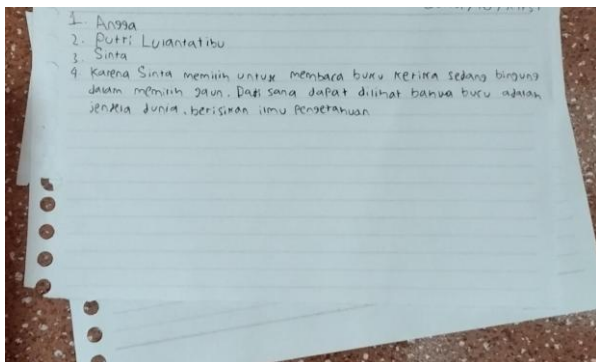 1. Angga
2. Putri Luiantatibu
3. Sinta
4. Karena Sinta memilih untuk membaca buku ketika sedang bingung
dalam memilih gaun. Dari sana dapat dilihat bahwa buku adalah
jendela dunia, berisikan ilmu pengetahuan